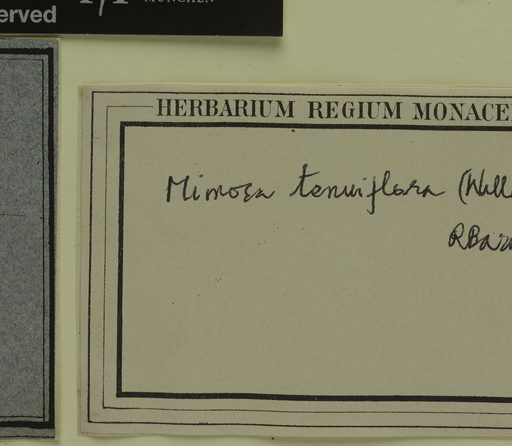 erved
MÜNCHEN
HERBARIUM REGIUM MONACE
Mimosa tenuiflora (Will
RBar